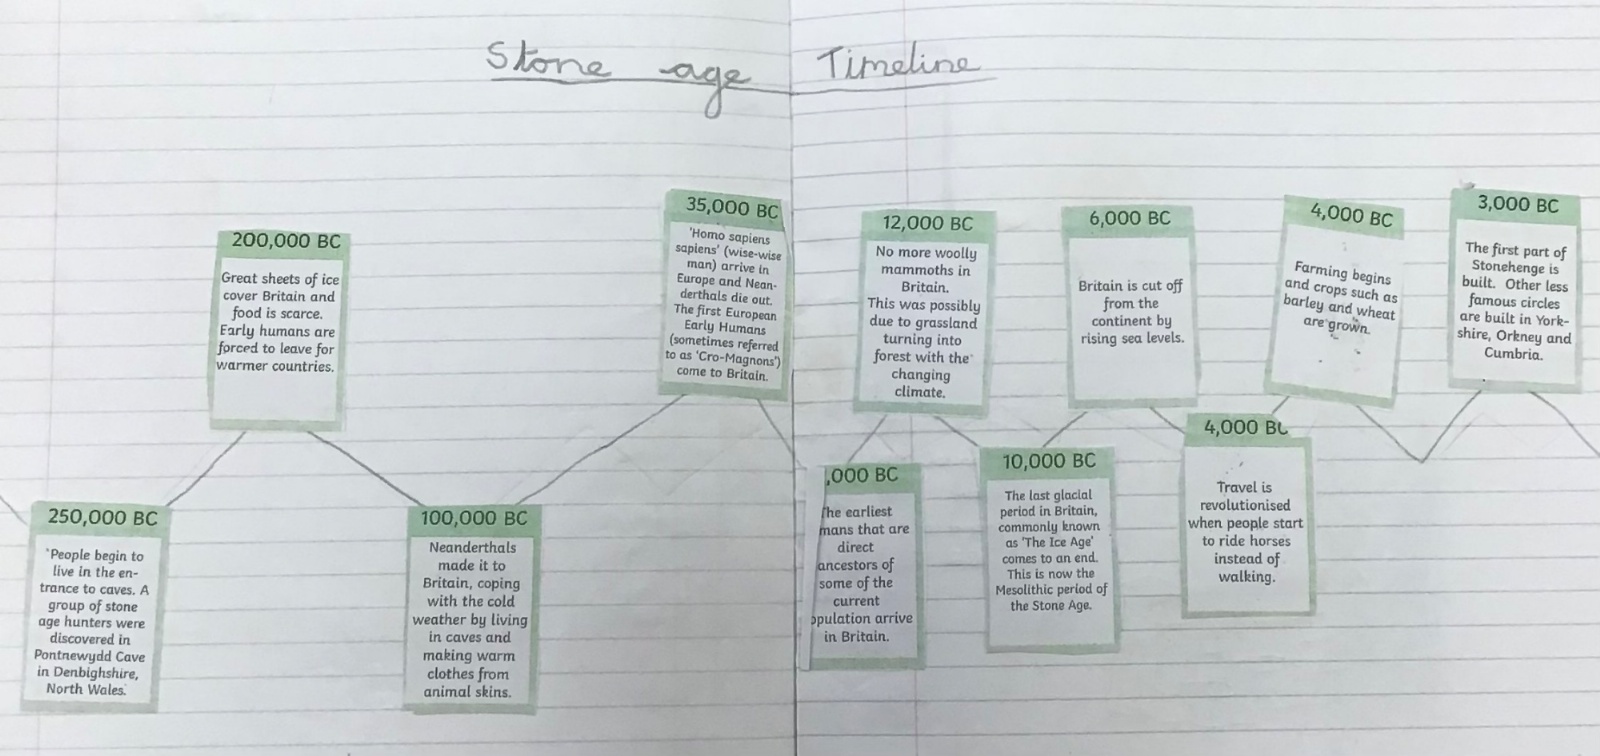 Stone age Timeline
250,000 BC
'People begin to
live in the en-
trance to caves. A
group of stone
age hunters were
discovered in
Pontnewydd Cave
in Denbighshire,
North Wales.
200,000 BC
Great sheets of ice
cover Britain and
food is scarce.
Early humans are
forced to leave for
warmer countries.
100,000 BC
Neanderthals
made it to
Britain, coping
with the cold
weather by living
in caves and
making warm
clothes from
animal skins.
35,000 BC
'Homo sapiens
sapiens' (wise-wise
man) arrive in
Europe and Nean-
derthals die out.
The first European
Early Humans
(sometimes referred
to as 'Cro-Magnons')
come to Britain.
,000 BC
The earliest
mans that are
direct
ancestors of
some of the
current
opulation arrive
in Britain.
12,000 BC
No more woolly
mammoths in
Britain.
This was possibly
due to grassland
turning into
forest with the
changing
climate.
10,000 BC
The last glacial
period in Britain,
commonly known
as 'The Ice Age'
comes to an end.
This is now the
Mesolithic period of
the Stone Age.
6,000 BC
Britain is cut off
from the
continent by
rising sea levels.
4,000 BC
Travel is
revolutionised
when people start
to ride horses
instead of
walking.
4,000 BC
Farming begins
and crops such as
barley and wheat
are grown.
3,000 BC
The first part of
Stonehenge is
built. Other less
famous circles
are built in York-
shire, Orkney and
Cumbria.